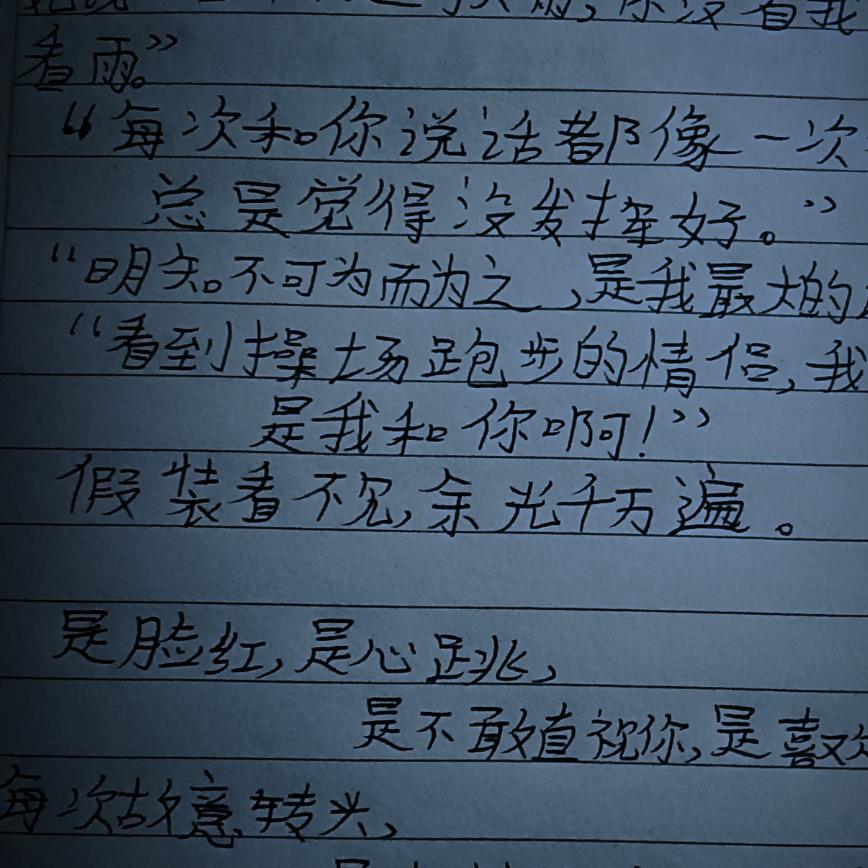 你没看我
看雨。”
“每次和你说话都像一次
总是觉得没发挥好。”
“明知不可为而为之,是我最大的
“看到操场跑步的情侣,我
是我和你啊!”
假装看不见,余光千万遍。
是脸红,是心跳,
是不敢直视你,是喜欢
每次故意转头,